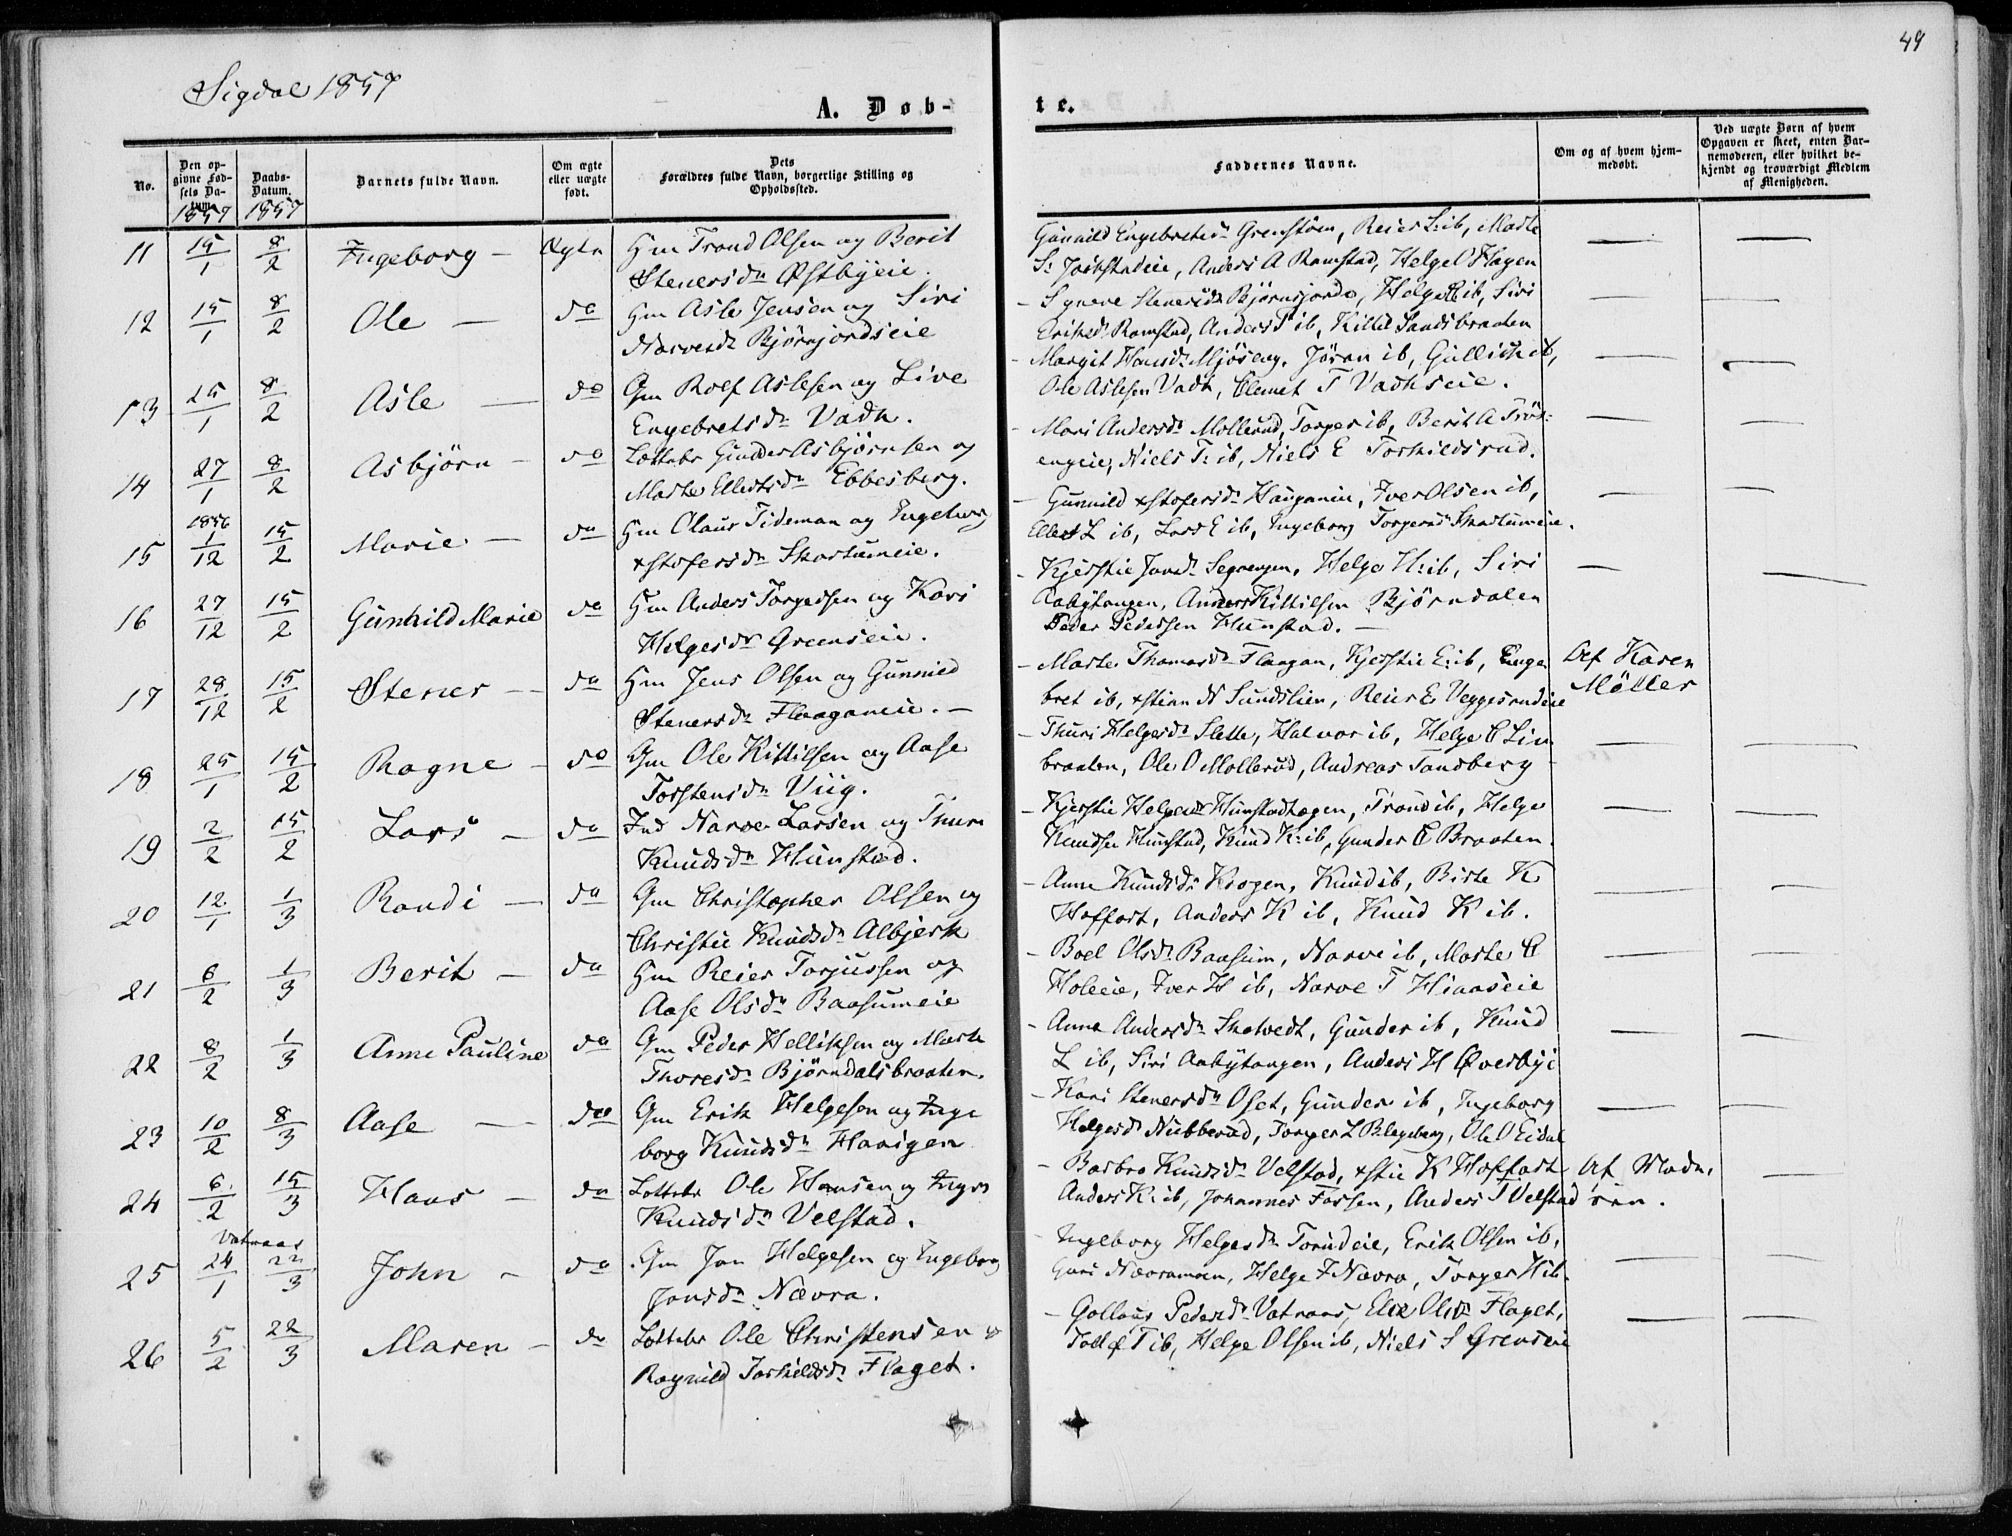 49
Sigdal 1857
A. Døb-
te.
No.
Den op-
givne Fød-
sels Da-
tum.
1857
Daabs-
Datum.
1857
Barnets fulde Navn.
Om ægte
eller uægte
født.
Dets
Forældres fulde Navn, borgerlige Stilling og
Opholdssted.
Faddernes Navne.
Om og af hvem hjem-
medøbt.
Ved uægte Børn af hvem
Opgaven er skeet, enten Bar-
nemoderen, eller hvilket be-
kjendt og troværdigt Medlem
af Menigheden.
11 15/1 8/2 Ingeborg - Ægte Hm Trond Olsen og Berit
Stenersdr Østbyeie.
Gunnild Engebretsdr Grenstøen, Reier ib, Marte
Anders A Ramstad, Helge Hagen
12 15/1 8/2 Ole - do Hm Asle Jensen og Siri
Narvesdr Bjørnjordseie
- Synneve Stenersdr Bjørnsjorde, Helge ib, Siri
Eriksdr Ramstad, Anders T ib, Kittil Sandsbraaten
13 25/1 8/2 Asle - do Gm Rolf Aslesen og Live
Engebretsdr Vadh.
- Margit Hansdr Mjøseng. Jøran ib, Gullich ib,
Ole Aslesen Vadh, Clemet T Vadhseie.
14 27/1 8/2 Asbjørn - do Lottebr Gunder Asbjørnsen og
Marte Ellertsdr Ebbesberg.
- Mari Andersdr Mollerud, Torger ib, Berit A Trøs-
engeie, Niels T: ib, Niels E Torkildsrud.
15 1856 1/12 15/2 Marie - do Hm Olaus Tideman og Ingeborg
xstofersdr Skartumeie.
- Gunnild xstofersdr Iver Olsen ib,
Ellert L ib, Lars E ib, Ingeborg Torgersdr Skartumeie.
16 27/12 15/2 Gunhild Marie do Hm Anders Torgersen og Kari
Helgesdr Grenseie.
- Kjerstie Jonsdr Helge H: ib, Siri
Aabytangen, Anders Kittilsen Bjørndalen
Peder Pedersen Hunstad. -
17 28/12 15/2 Stener - do Hm Jens Olsen og Gunnild
Stenersdr Flaaganeie. -
- Marte Thomasdr Flaagan, Kjerstie E: ib, Enge
bret ib, xstian N Sundslien, Reier E Veggesrudeie
Af Karen
Møller
18 25/1 15/2 Ragne - do Gm Ole Kittilsen og Aase
Torstensdr Viig.
- Thuri Helgesdr Slette, Halvor ib, Helge C Lin
braaten, Ole O Mollerud, Andreas Sandberg
19 2/2 15/2 Lars - do Ind Narve Larsen og Thure
Knudsdr Hunstad.
- Kjerstie Helgesdr Hunstadhagen, Trond ib, Helge
Knudsen Hunstad, Knud K: ib, Gunder C Braaten.
20 12/1 1/3 Randi - do Gm Christopher Olsen og
Christie Knudsdr Albjerk
- Anne Knudsdr Krogen, Knud ib, Birte K
Hoffart, Anders K ib, Knud K ib.
21 6/2 1/3 Berit - do Hm Reier Torjussen og
Aase Olsdr Baasumeie
- Boel Olsdr Baasum, Narve ib, Marte C
Holeie, Iver H ib, Narve T Hiaaseie
22 8/2 1/3 Anne Pauline do Gm Peder Helliksen og Marte
Thoresdr Bjørndalsbraaten.
- Anne Andersdr Skatvedt, Gunder ib, Knud
L ib, Siri Aabytangen, Anders H Øverbye
23 10/2 8/3 Aase - do Gm Erik Helgesen og Inge
borg Knudsdr Haaigen
- Kari Stenersdr Oset, Gunder ib, Ingeborg
Helgesdr Nubberud, Torger L Ole O Eidal
24 6/2 15/3 Hans - do Lottebr Ole Hansen og Inger
Knudsdr Velstad.
- Barbro Knudsdr Velstad, xstie K Hoffart
Anders K: ib, Johannes Fossen, Anders T Velstad
Af Mode-
ren.
Vatnaas
25 24/1 22/3 John - do Gm Jon Helgesen og Ingeborg
Jonsdr Nævra.
- Ingeborg Helgesdr Torudeie, Erik Olsen ib,
Guri Nævramoen, Helge J Nævra, Torger H ib.
26 5/2 22/3 Maren - do Lottebr Ole Christensen &
Ragnild Torkildsdr Flaget.
- Gollaus Pedersdr Vatnaas, Elie Olsdr Flaget,
Tollef T ib, Helge Olsen ib, Niels S Grenseie